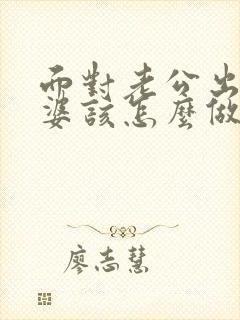 面對老公出
婆該怎麼做
廖志慧